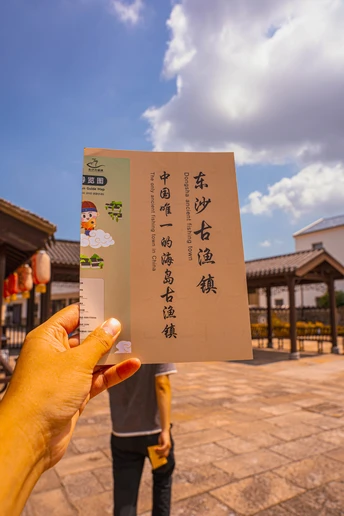 东沙古渔镇
Dongsha ancient fishing town
中国唯一的海岛古渔镇
The only ancient fishing town in China
览图